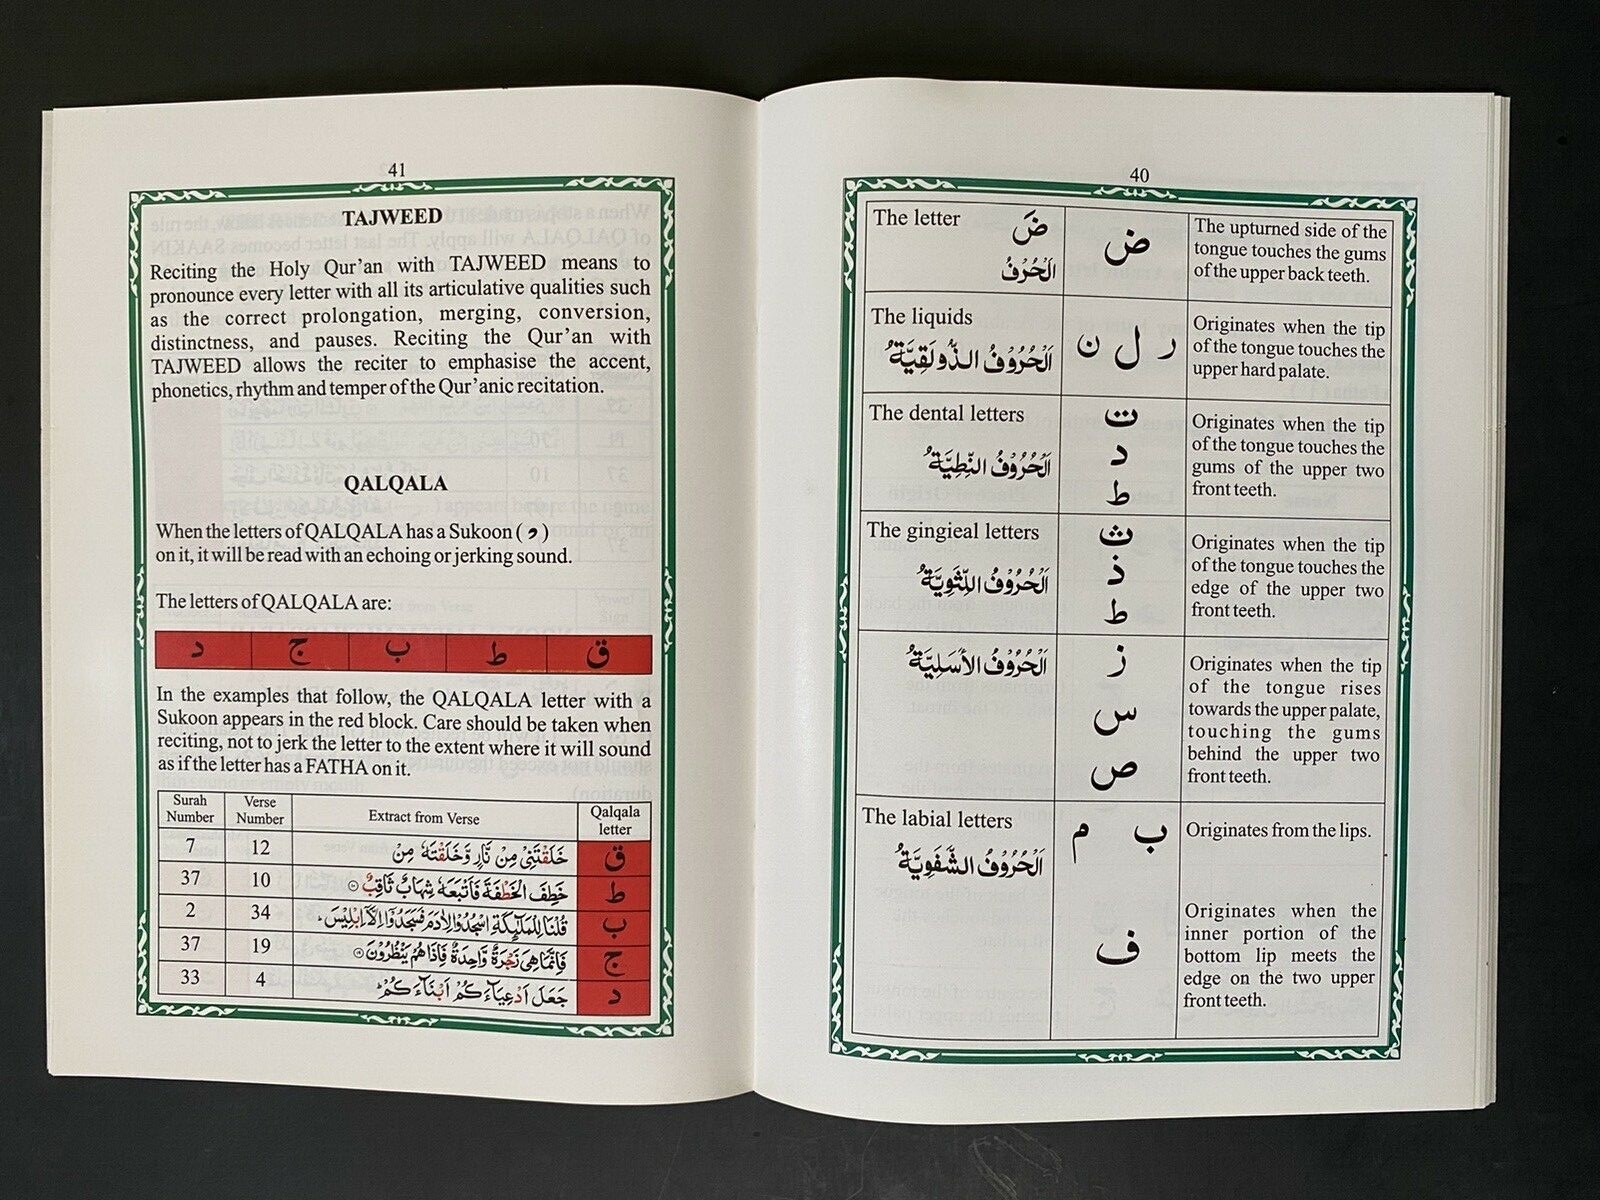 40
The letter
ضَ
اَلْحُرْفُ
ض
The upturned side of the
tongue touches the gums
of the upper back teeth.
The liquids
اَلْحُرُوْفُ الذَّوْلَقِيَّةُ
ر ل ن
Originates when the tip
of the tongue touches the
upper hard palate.
The dental letters
اَلْحُرُوْفُ النِّطِيَّةُ
ت
د
ط
Originates when the tip
of the tongue touches the
gums of the upper two
front teeth.
The gingieal letters
اَلْحُرُوْفُ اللِّثَوِيَّةُ
ث
ذ
ط
Originates when the tip
of the tongue touches the
edge of the upper two
front teeth.
اَلْحُرُوْفُ الْأَسَلِيَّةُ
ز
س
ص
Originates when the tip
of the tongue rises
towards the upper palate,
touching the gums
behind the upper two
front teeth.
The labial letters
اَلْحُرُوْفُ الشَّفَوِيَّةُ
ب م
Originates from the lips.
ف
Originates when the
inner portion of the
bottom lip meets the
edge on the two upper
front teeth.
41
TAJWEED
Reciting the Holy Qur'an with TAJWEED means to
pronounce every letter with all its articulative qualities such
as the correct prolongation, merging, conversion,
distinctness, and pauses. Reciting the Qur'an with
TAJWEED allows the reciter to emphasise the accent,
phonetics, rhythm and temper of the Qur'anic recitation.
QALQALA
When the letters of QALQALA has a Sukoon ( ْ )
on it, it will be read with an echoing or jerking sound.
The letters of QALQALA are:
ق ط ب ج د
In the examples that follow, the QALQALA letter with a
Sukoon appears in the red block. Care should be taken when
reciting, not to jerk the letter to the extent where it will sound
as if the letter has a FATHA on it.
Surah Number Verse Number Extract from Verse Qalqala letter
7 12 خَلَقْتَنِيْ مِنْ نَّارٍ وَّخَلَقْتَهٗ مِنْ ق
37 10 خَطِفَ الْخَطْفَةَ فَاَتْبَعَهٗ شِهَابٌ ثَاقِبٌ ۝۱۰ ط
2 34 قُلْنَا لِلْمَلٰٓئِكَةِ اسْجُدُوْا لِاٰدَمَ فَسَجَدُوْٓا اِلَّآ اِبْلِيْسَ ب
37 19 فَاِنَّمَا هِيَ زَجْرَةٌ وَّاحِدَةٌ فَاِذَا هُمْ يَنْظُرُوْنَ ۝۱۹ ج
33 4 جَعَلَ اَدْعِيَآءَكُمْ اَبْنَآءَكُمْ د